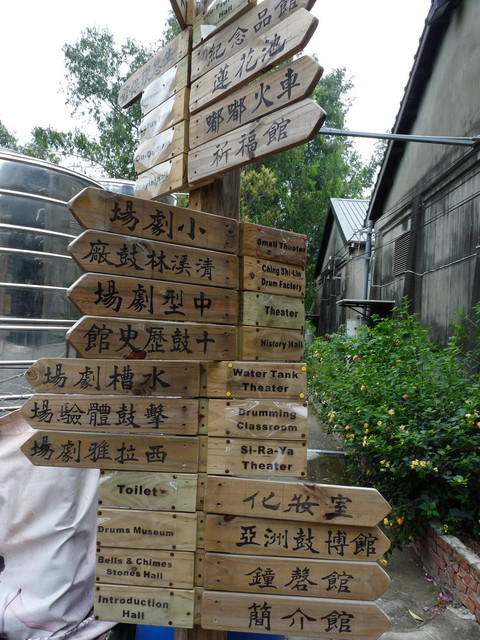 Hall
紀念品館
蓮花池
嘟嘟火車
祈福館
小劇場
Small Theater
清溪林鼓廠
Ching Shi-Lin
Drum Factory
中型劇場
Theater
十鼓歷史館
History Hall
水槽劇場
Water Tank
Theater
擊鼓體驗場
Drumming
Classroom
西拉雅劇場
Si-Ra-Ya
Theater
Toilet
化妝室
Drums Museum
亞洲鼓博館
Bells & Chimes
Stones Hall
鐘磬館
Introduction
Hall
簡介館